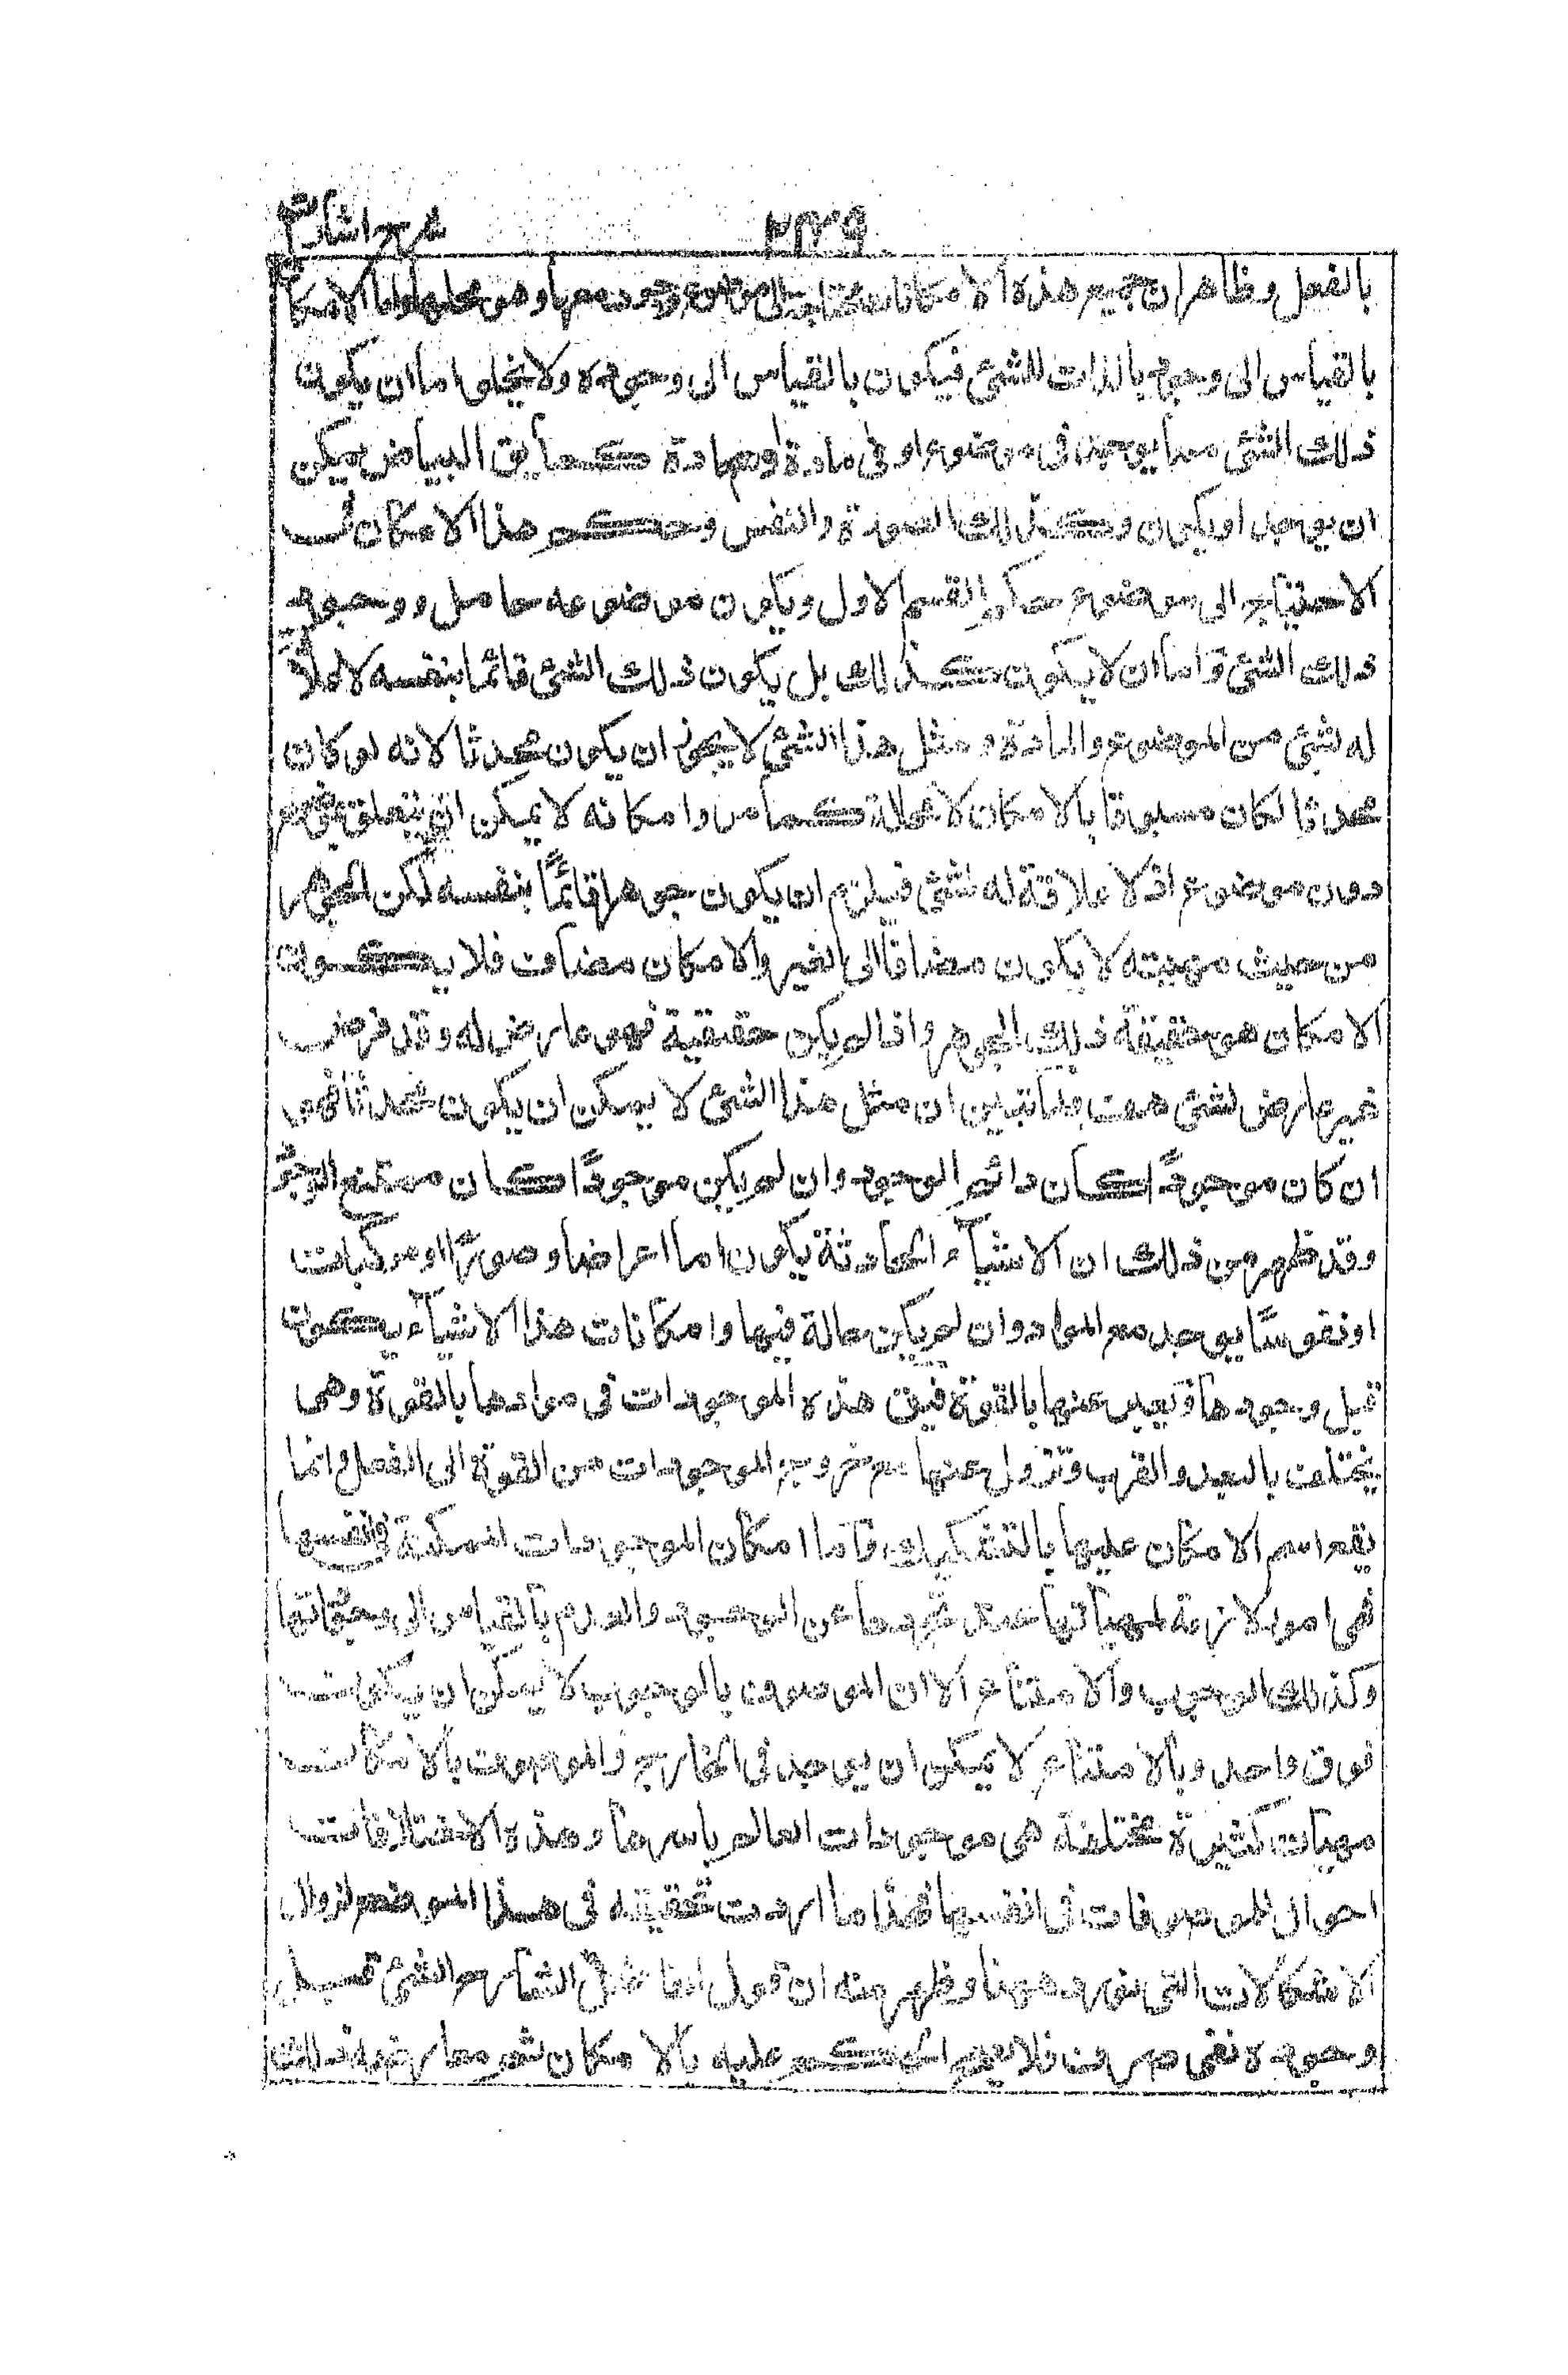 شرح اشارات
٢٢٩
بالفعل وظاهر ان جميع هذه الامكانات محتاجة الى موضوع موجود معها وهو محلها واما الامكا
بالقياس الى وجود بالذات للشئ فيكون بالقياس الى وجوده ولا يخلو اما ان يكون
ذلك الشئ مما يوجد فى موضوع او فى مادة او مع مادة كما يق البياض يمكن
ان يوجد او يكون وكذلك الصورة والنفس وحكم هذا الامكان فى
الاحتياج الى موضوع حكم القسم الاول ويكون موضوعه حامل وجود
ذلك الشئ واما ان لا يكون كذلك بل يكون ذلك الشئ قائما بنفسه لا علاقة
له بشئ من الموضوع والمادة ومثل هذا الشئ لا يجوز ان يكون محدثا لانه لو كان
محدثا لكان مسبوقا بالامكان لا محالة كما مر وامكانه لا يمكن ان يتعلق بموضوع
دون موضوع اذ لا علاقة له بشئ فيلزم ان يكون جوهرا قائمًا بنفسه لكن الجوهر
من حيث مهيته لا يكون مضافا الى الغير والامكان مضاف فلا يكون
الامكان هو حقيقة ذلك الجوهر واذا لم يكن حقيقية فهو عارض له وقد فرض
غير عارض لشئ هف فلما تبين ان مثل هذا الشئ لا يمكن ان يكون محدثا فهو
ان كان موجودًا كان دائم الوجود وان لم يكن موجودًا كان ممتنع الوجود
وقد ظهر من ذلك ان الاشيآء الحادثة يكون اما اعراضا وصورًا او مركبات
او نفوسًا يوجد مع المواد وان لم يكن حالة فيها وامكانات هذا الاشيآء يكون
قبل وجودها ويعبر عنها بالقوة فيق هذه الموجودات فى موادها بالقوة وهى
يختلف بالبعد والقرب وتزول عنها مع خروج الموجودات من القوة الى الفعل وانما
يقع اسم الامكان عليها بالتشكيك فاما امكان الموجودات الممكنة فى انفسها
فهى امور لازمة لمهياتها عند تجردها عن الوجود والعدم بالقياس الى وجوداتها
وكذلك الوجوب والامتناع الا ان الموصوف بالوجوب لا يمكن ان يكون
فوق واحد وبالامتناع لا يمكن ان يوجد فى الخارج والموصوف بالامكان
مهيات كثيرة مختلفة هى موجودات العالم باسرها وهذه الاختلافات
احوال للموصوفات فى انفسها فهذا ما اردت تحقيقه فى هذا الموضع لزوال
الاشكالات التى تورد ههنا وظهر منه ان قول الفاضل الشارح الشئ قبل
وجوده نفى صرف فلا يصح الحكم عليه بالامكان ثم معارضة ذلك